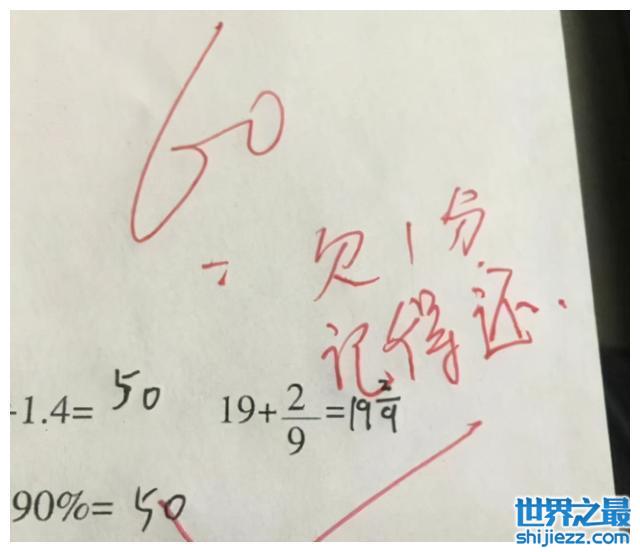 60
欠1分
记得还.
-1.4= 50
19+2/9=19 2/9
90%= 50
世界之最
shijiezz.com